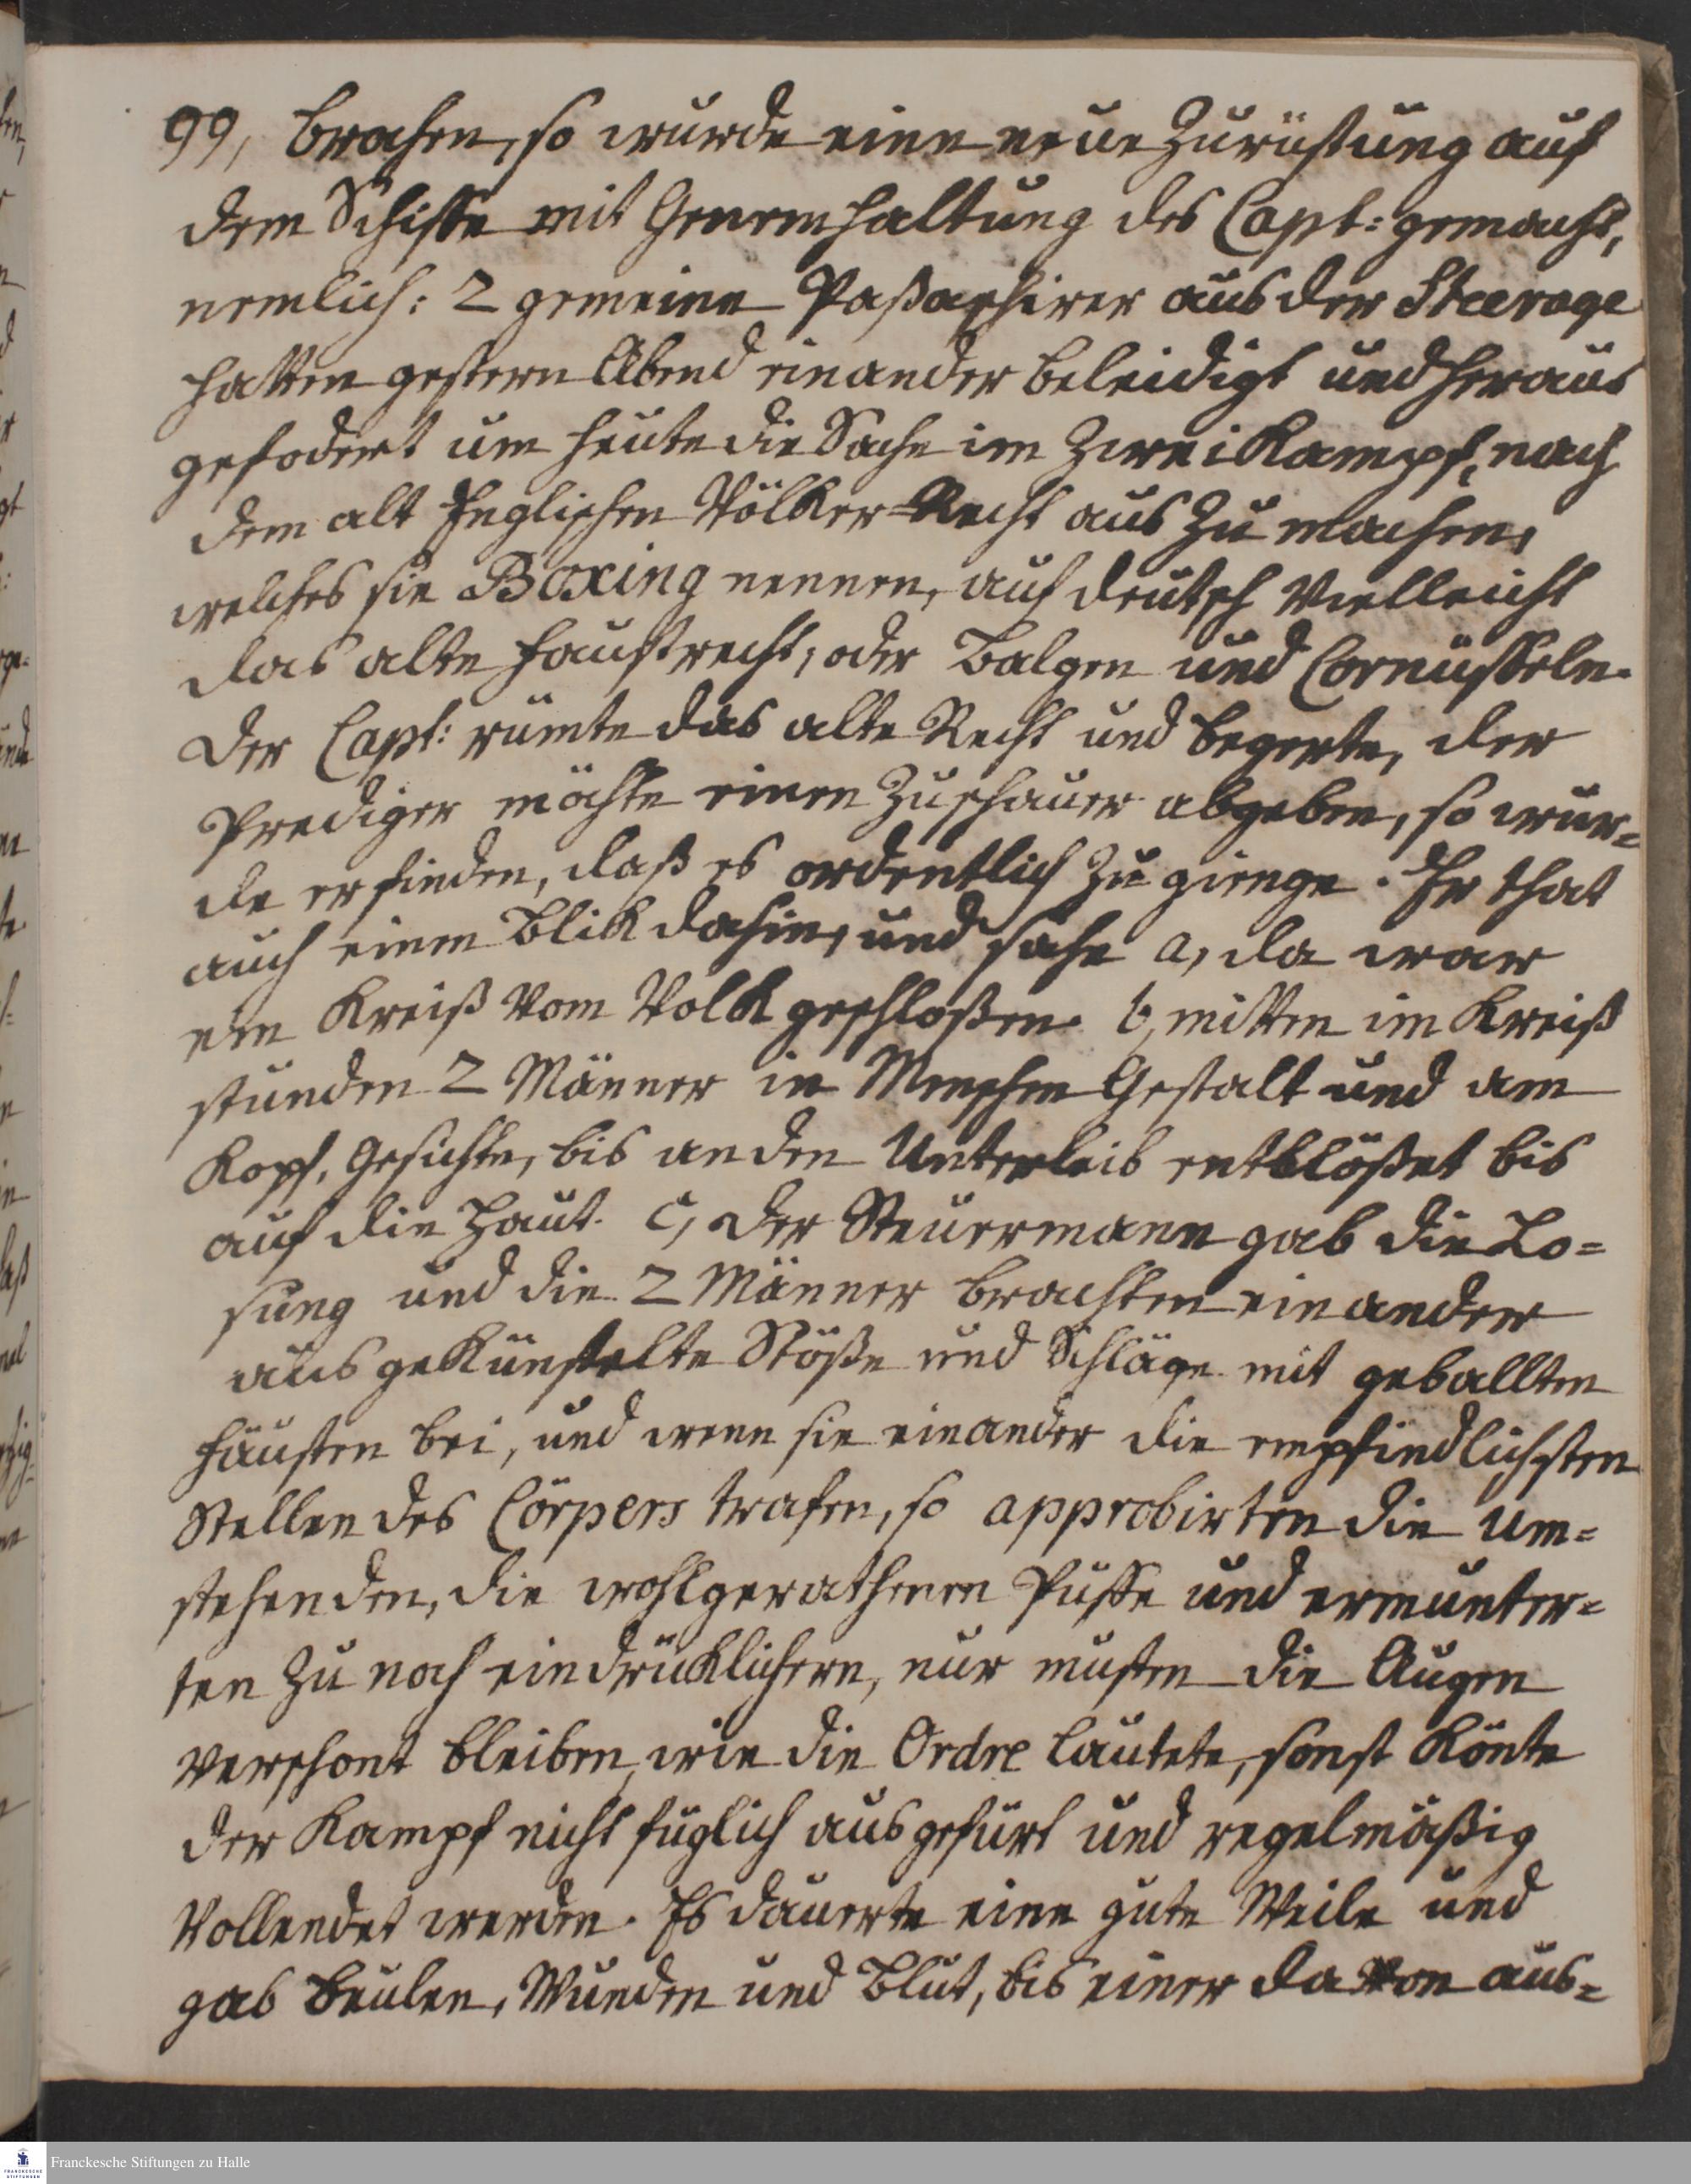 99, brachen, so wurde eine neue Zurüstung auf
dem Schiffe mit Genemhaltung des Capt: gemacht,
nemlich: 2 gemeine Paßaschirer aus der Steerage
hatten gestern Abend einander beleidigt und heraus
gefodert um heute die Sache im Zweikampf, nach
dem alt Englischen Völker-Recht aus zu machen,
welches sie Boxing nennen, auf deutsch vielleicht
das alte Faustrecht, oder Balgen und Cornüffeln.
Der Capt: rümte das alte Recht und begerte, der
Prediger möchte einen Zuschauer abgeben, so wur=
de er finden, daß es ordentlich zu gienge. Er that
auch einen Blik dahin, und sahe a, da war
ein Kreiß vom Volk geschloßen. b, mitten im Kreiß
stunden 2 Männer in Menschen Gestalt und am
Kopf, Gesichte, bis an den Unterleib entblößet bis
auf die Haut. c, Der Steuermann gab die Lo=
sung und die 2 Männer brachten einander
ausgekünstelte Stöße und Schläge mit geballten
Fäusten bei, und wenn sie einander die empfindlichsten
Stellen des Cörpers trafen, so approbirten die Um=
stehenden, die wohlgerathenen Püffe und ermunter=
ten zu noch eindrüklichern, nur musten die Augen
verschont bleiben, wie die Ordre lautete, sonst könte
der Kampf nicht füglich ausgefürt und regelmäßig
vollendet werden. Es dauerte eine gute Weile und
gab Beulen, Wunden und Blut, bis einer davon aus=
Franckesche Stiftungen zu Halle